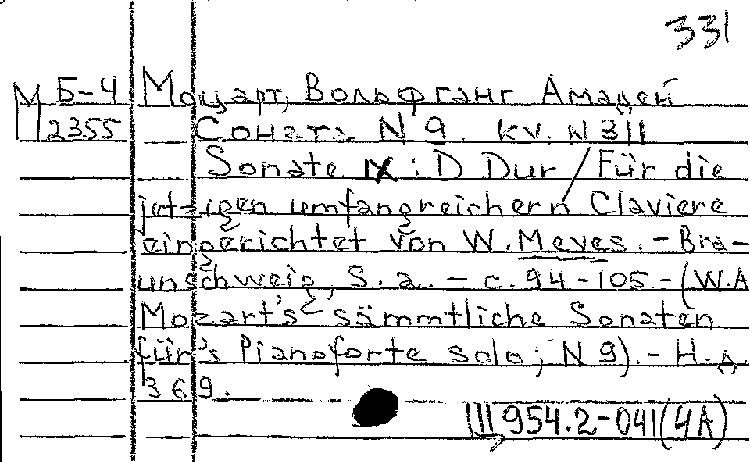 331
М Б-4 Моцарт, Вольфганг Амадей
2355 Соната N 9. KV. N 311
Sonate IX: D Dur / Für die
jetzigen umfangreichern Claviere
eingerichtet von W. Meves. - Bra-
unschweig, S. a. - c. 94-105 - (W.A
Mozart's sämmtliche Sonaten
für's Pianoforte solo; N 9). - Н. д.
369.
III 954.2-041(4A)